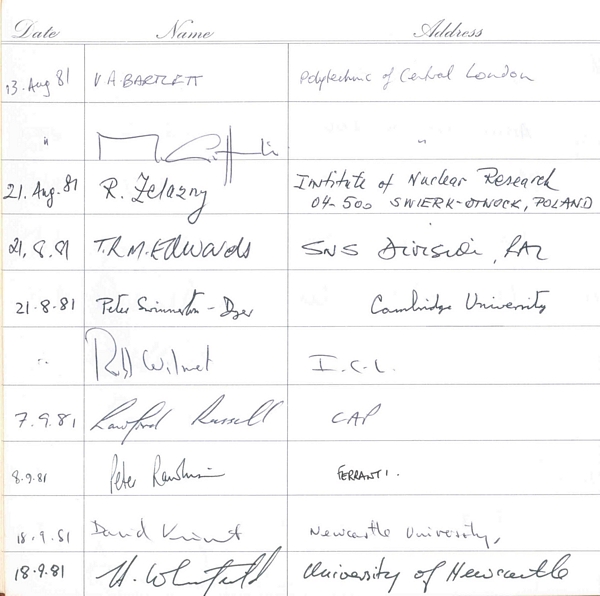 Date Name Address
13. Aug 81 V A. BARTLETT Polytechnic of Central London
" "
21. Aug. 81 R. Żelazny Institute of Nuclear Research
04-500 SWIERK-OTWOCK, POLAND
21. 8. 81 T.R.M. Edwards SNS Division, RAL
21-8-81 Peter Swinnerton-Dyer Cambridge University
" I.C.L.
7.9.81 Crawford Russell CAP
8.9.81 Peter FERRANTI.
18.9.81 David Newcastle University,
18.9.81 H. Whitfield University of Newcastle